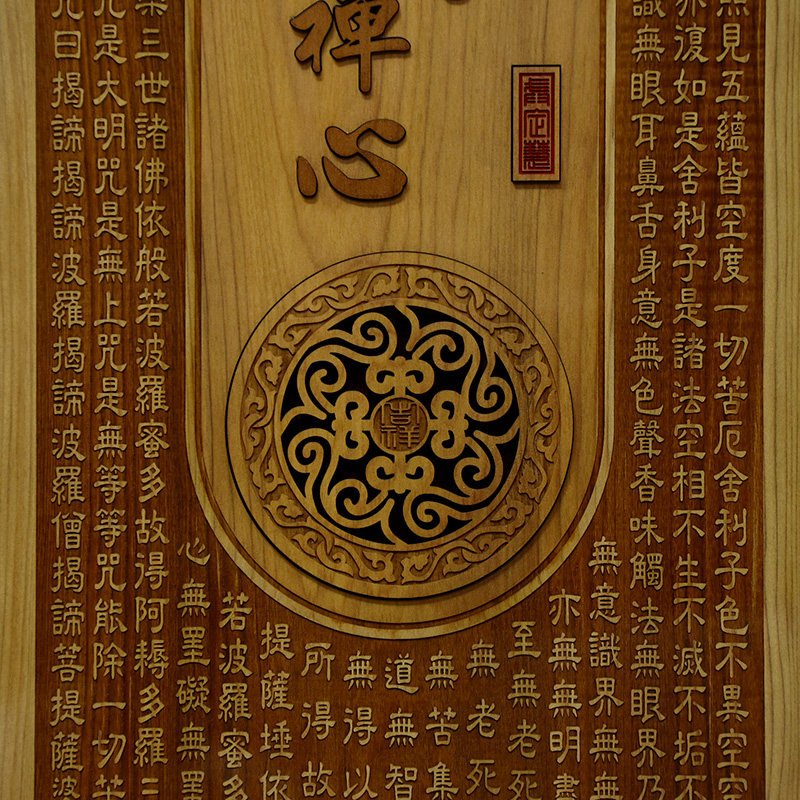 照見五蘊皆空度一切苦厄舍利子色不異空空
亦復如是舍利子是諸法空相不生不滅不垢不
識無眼耳鼻舌身意無色聲香味觸法無眼界乃
無意識界無無
亦無無明盡
至無老死
無老死
無苦集
道無智
無得以
所得故
提薩埵依
若波羅蜜多
心無罣礙無罣
三世諸佛依般若波羅蜜多故得阿耨多羅三
咒是大明咒是無上咒是無等等咒能除一切苦
咒曰揭諦揭諦波羅揭諦波羅僧揭諦菩提薩
禪心
吉祥